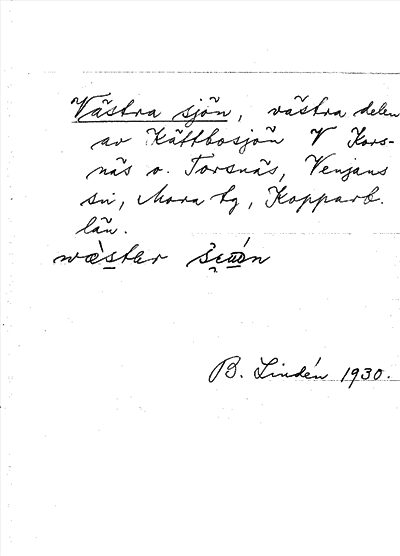 Västra sjön, västra delen
av Kättbosjön V Kors-
näs o. Torsnäs, Venjans
sn, Mora tg, Kopparb.
län.
B. Lindén 1930.